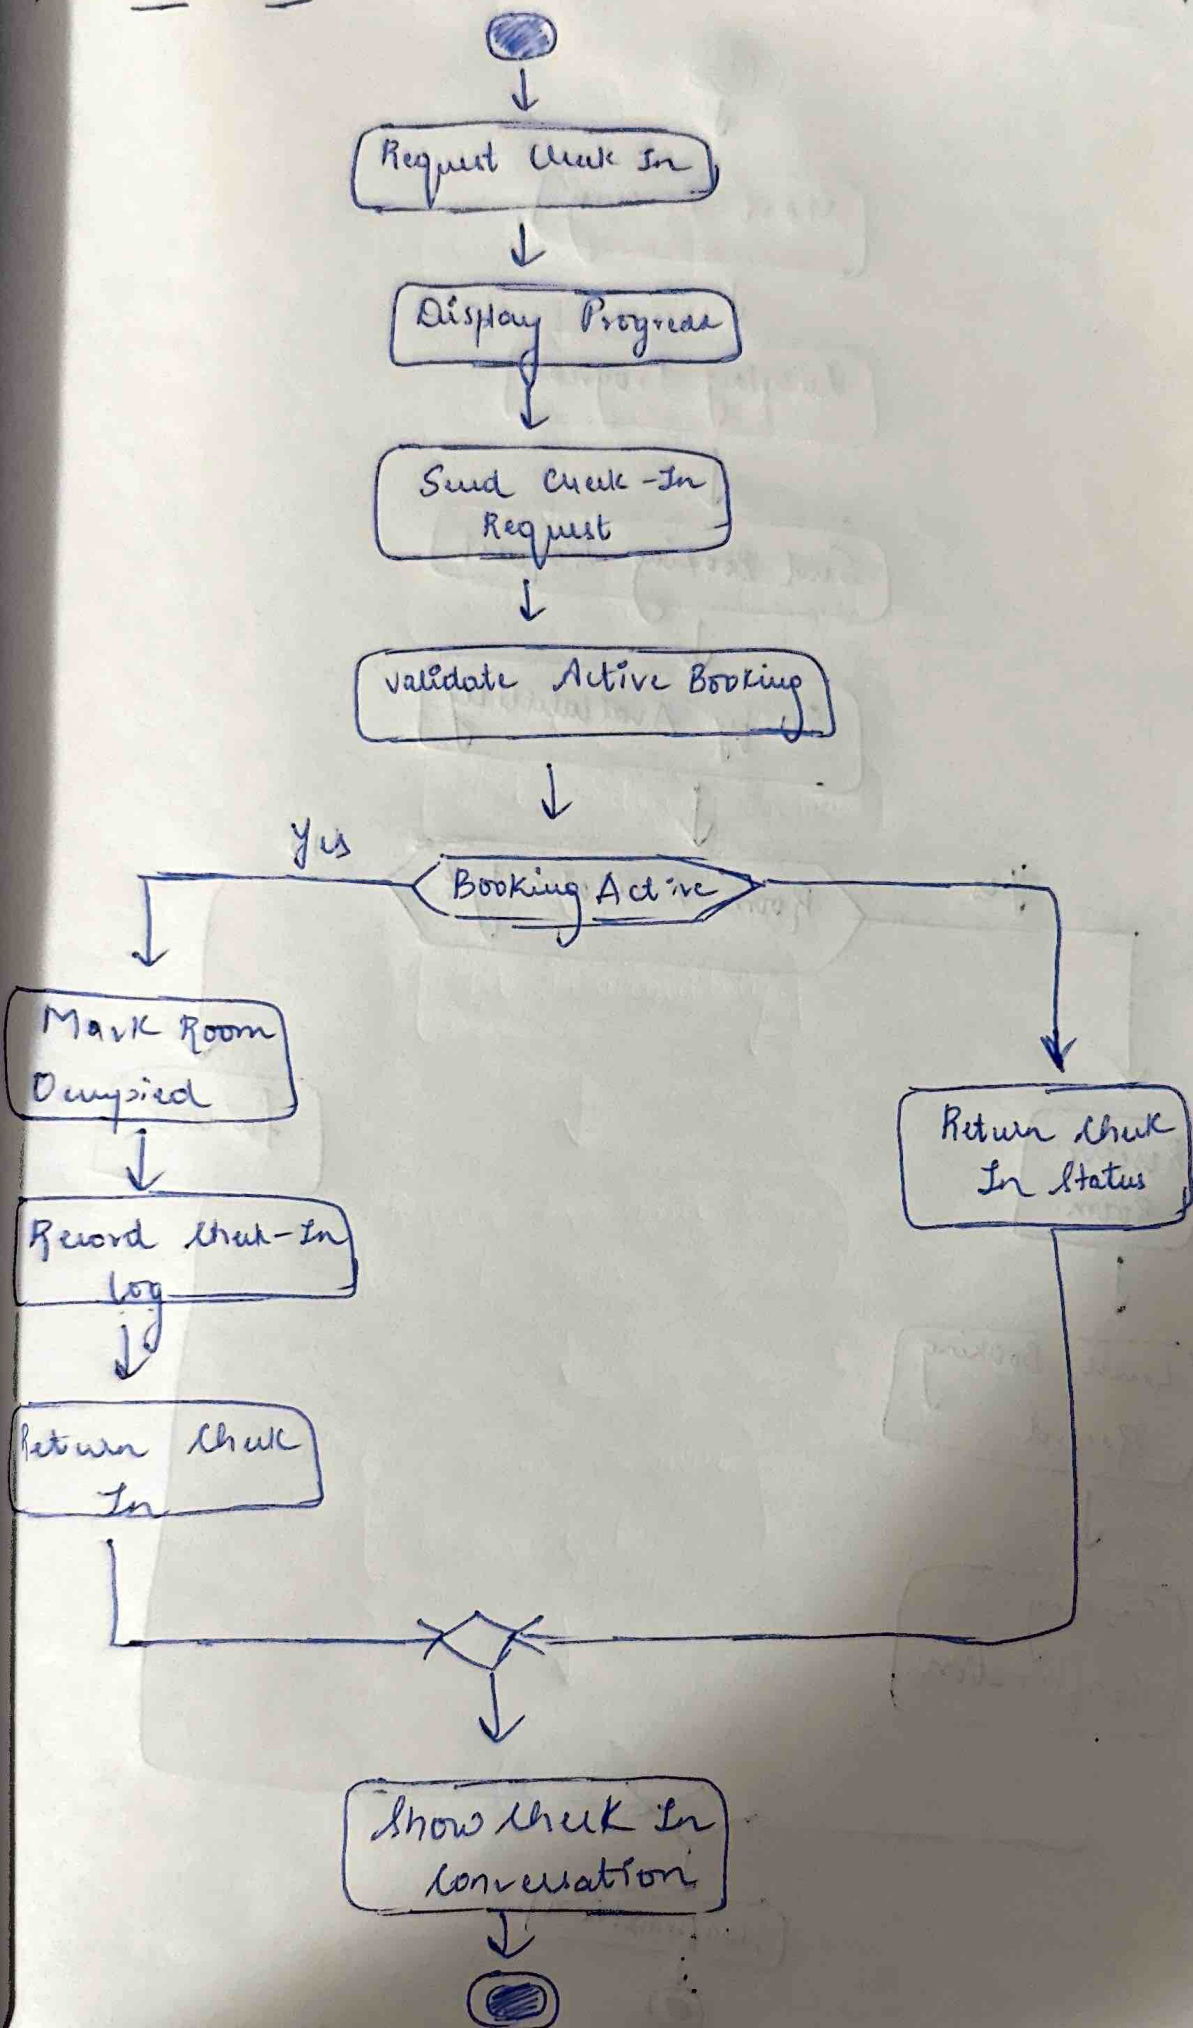 Request Check In
Display Progress
Send Check-In
Request
Validate Active Booking
Yes
Booking Active
Mark Room
Occupied
Return Check
In Status
Record Check-In
Log
Return Check
In
Show Check In
Conversation